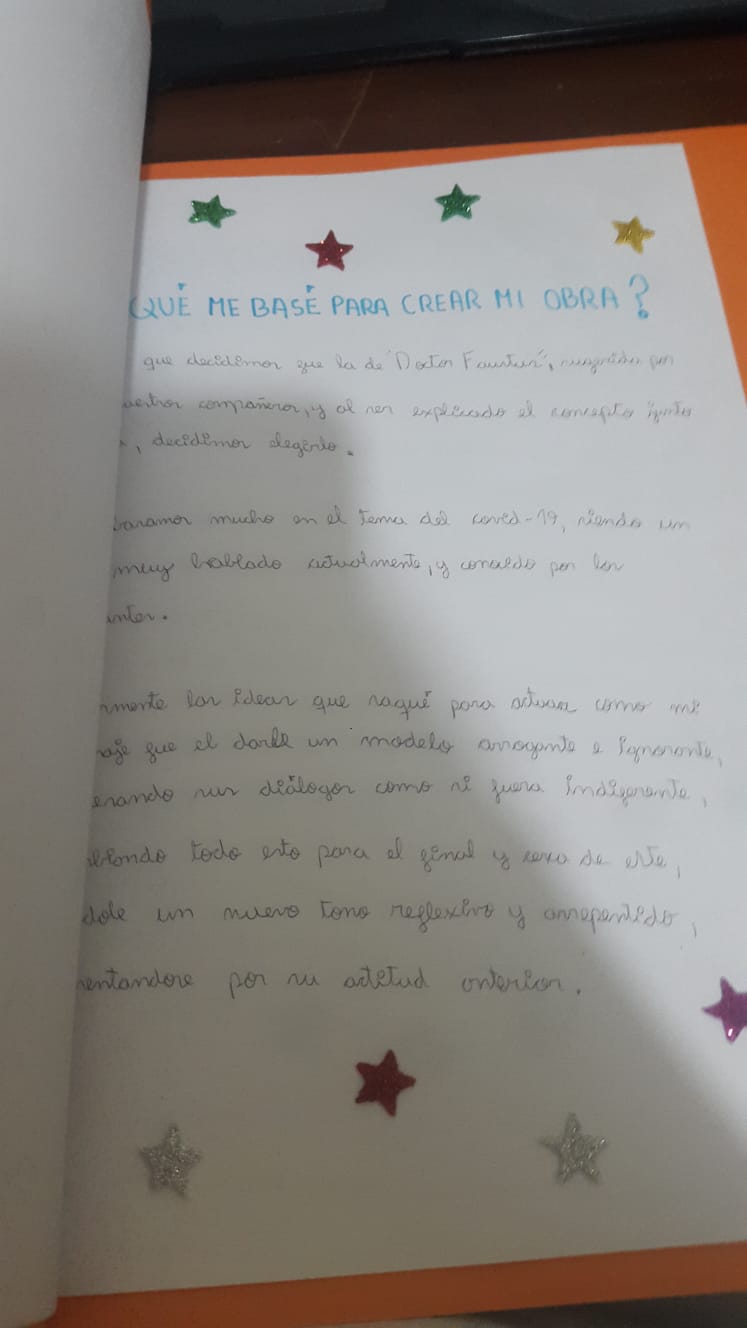 QUÉ ME BASÉ PARA CREAR MI OBRA?
que decidimos que la de "Doctor Faustus", sugerida por
uestros compañeros, y al ser explicado el concepto junto
, decidimos elegirlo.
basamos mucho en el tema del covid-19, siendo un
muy hablado actualmente, y conocido por los
rmente las ideas que saqué para actuar como mi
naje fue el darle un modelo arrogante e ignorante,
erando sus diálogos como si fuera indignante,
todo esto para el final y cerca de este,
dole un nuevo tono reflexivo y arrepentido,
mentandose por su actitud anterior.